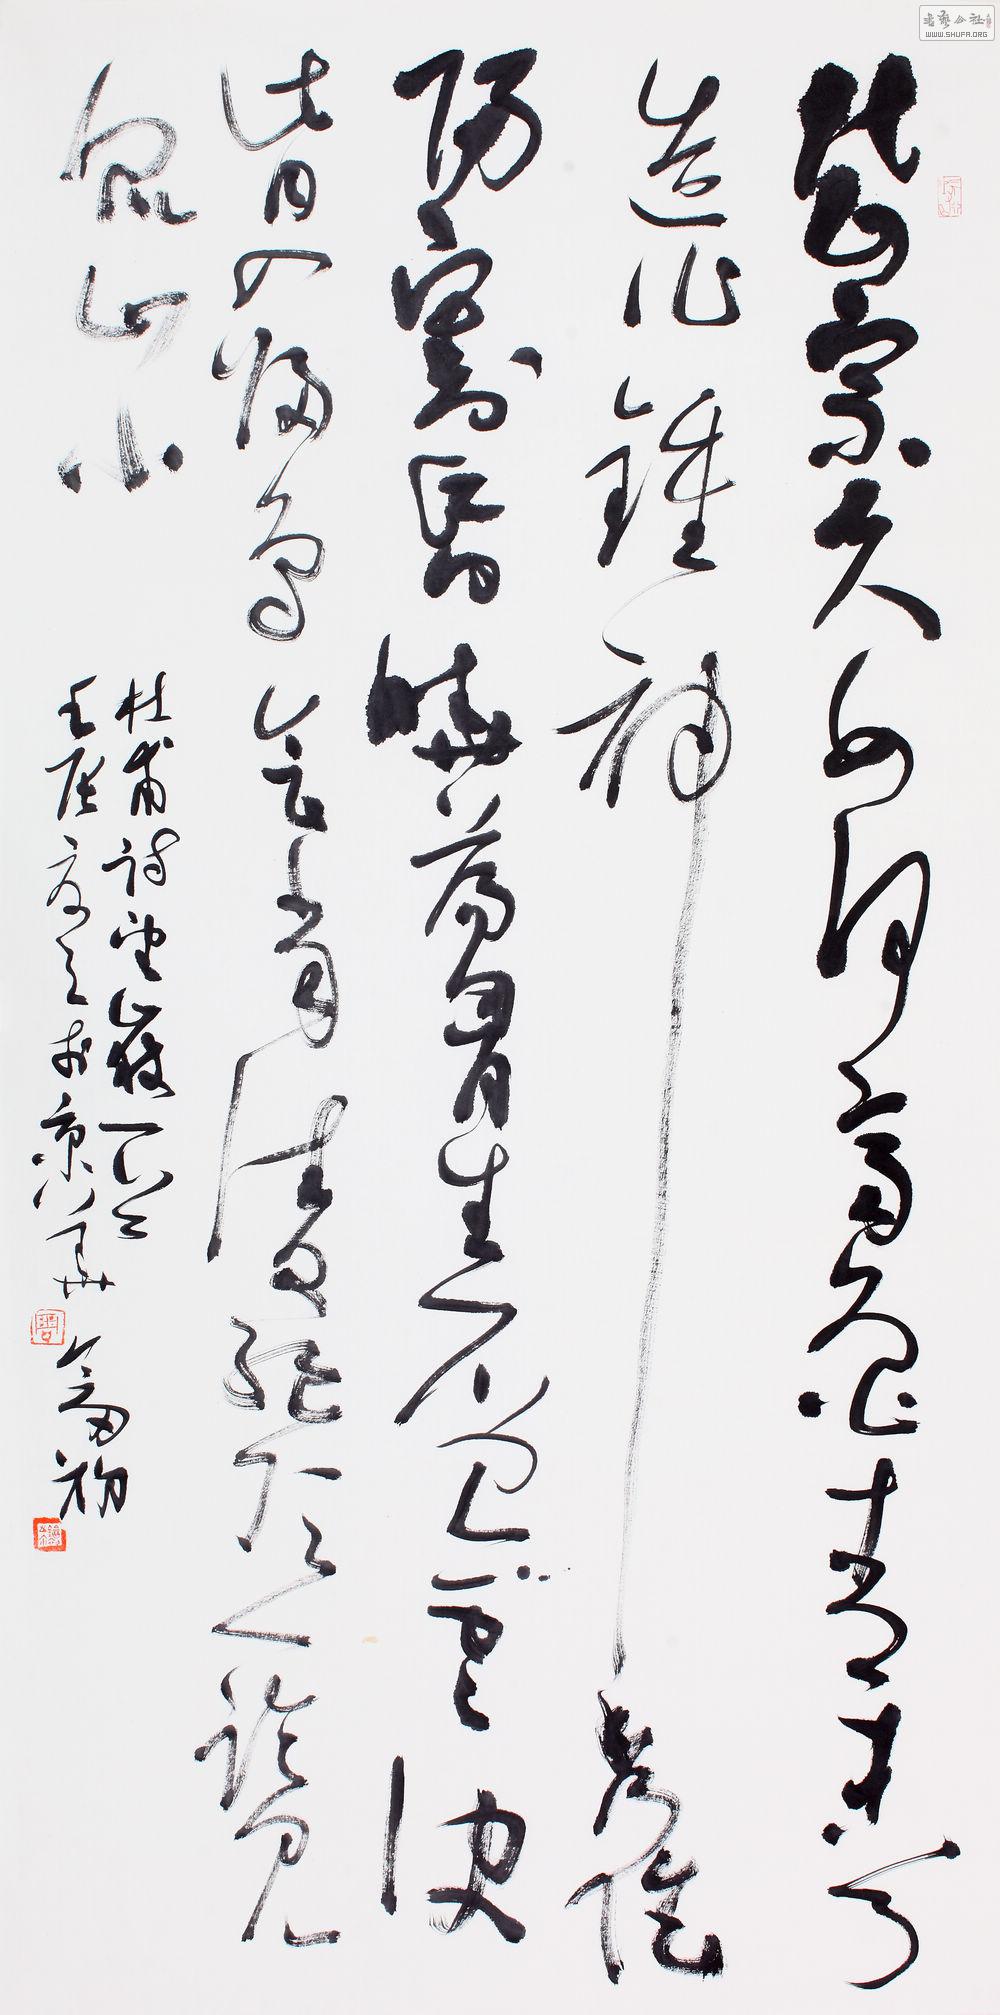 岱宗夫如何齊魯青未了
造化鍾神秀陰
陽割昏曉蕩胸生層雲決
眥入歸鳥會當凌絕頂一覽
眾山小
杜甫詩望嶽一首
壬辰夏之於京華
书艺公社
WWW.SHUFA.ORG